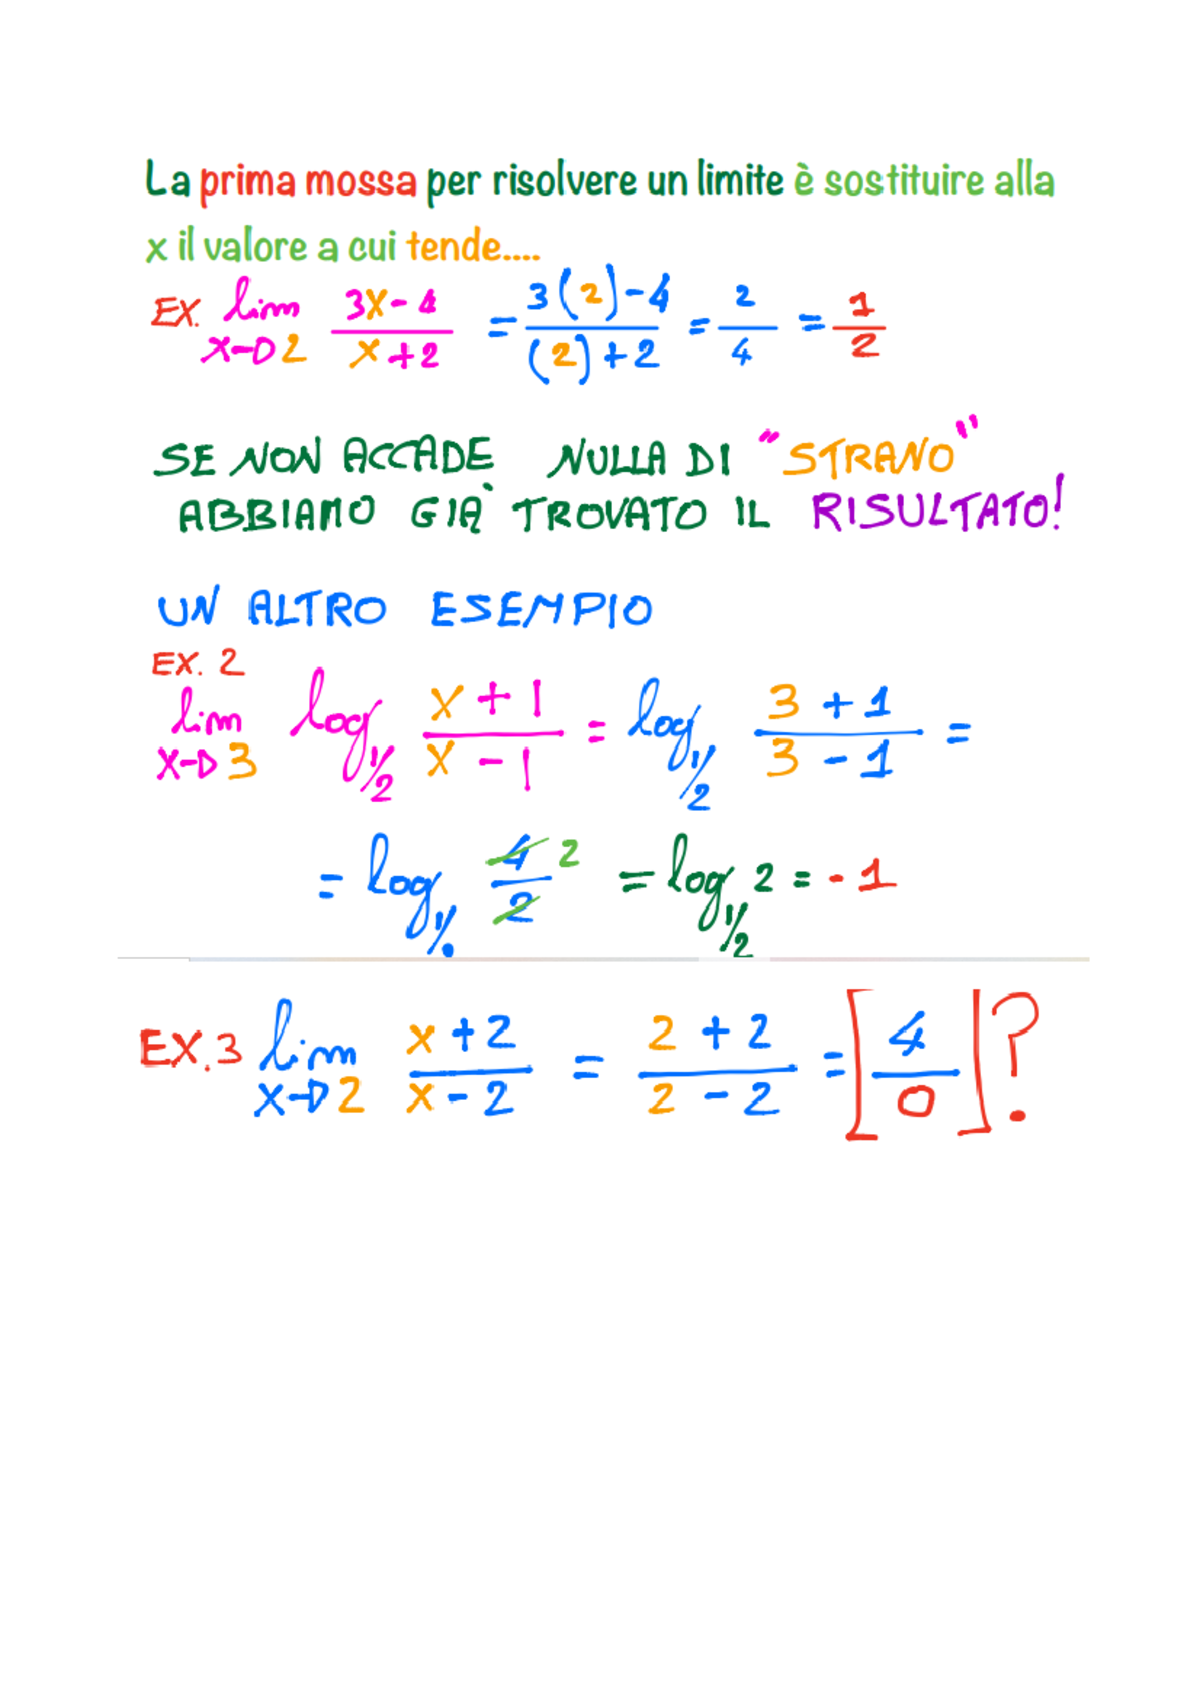 La prima mossa per risolvere un limite è sostituire alla
x il valore a cui tende....
EX. lim x→2 (3x-4)/(x+2) = (3(2)-4)/((2)+2) = 2/4 = 1/2
SE NON ACCADE NULLA DI "STRANO"
ABBIAMO GIÀ TROVATO IL RISULTATO!
UN ALTRO ESEMPIO
EX. 2
lim x→3 log_1/2 (x+1)/(x-1) = log_1/2 (3+1)/(3-1) =
= log_1/ 4/2 2 = log_1/2 2 = -1
EX.3 lim x→2 (x+2)/(x-2) = (2+2)/(2-2) = [4/0]?